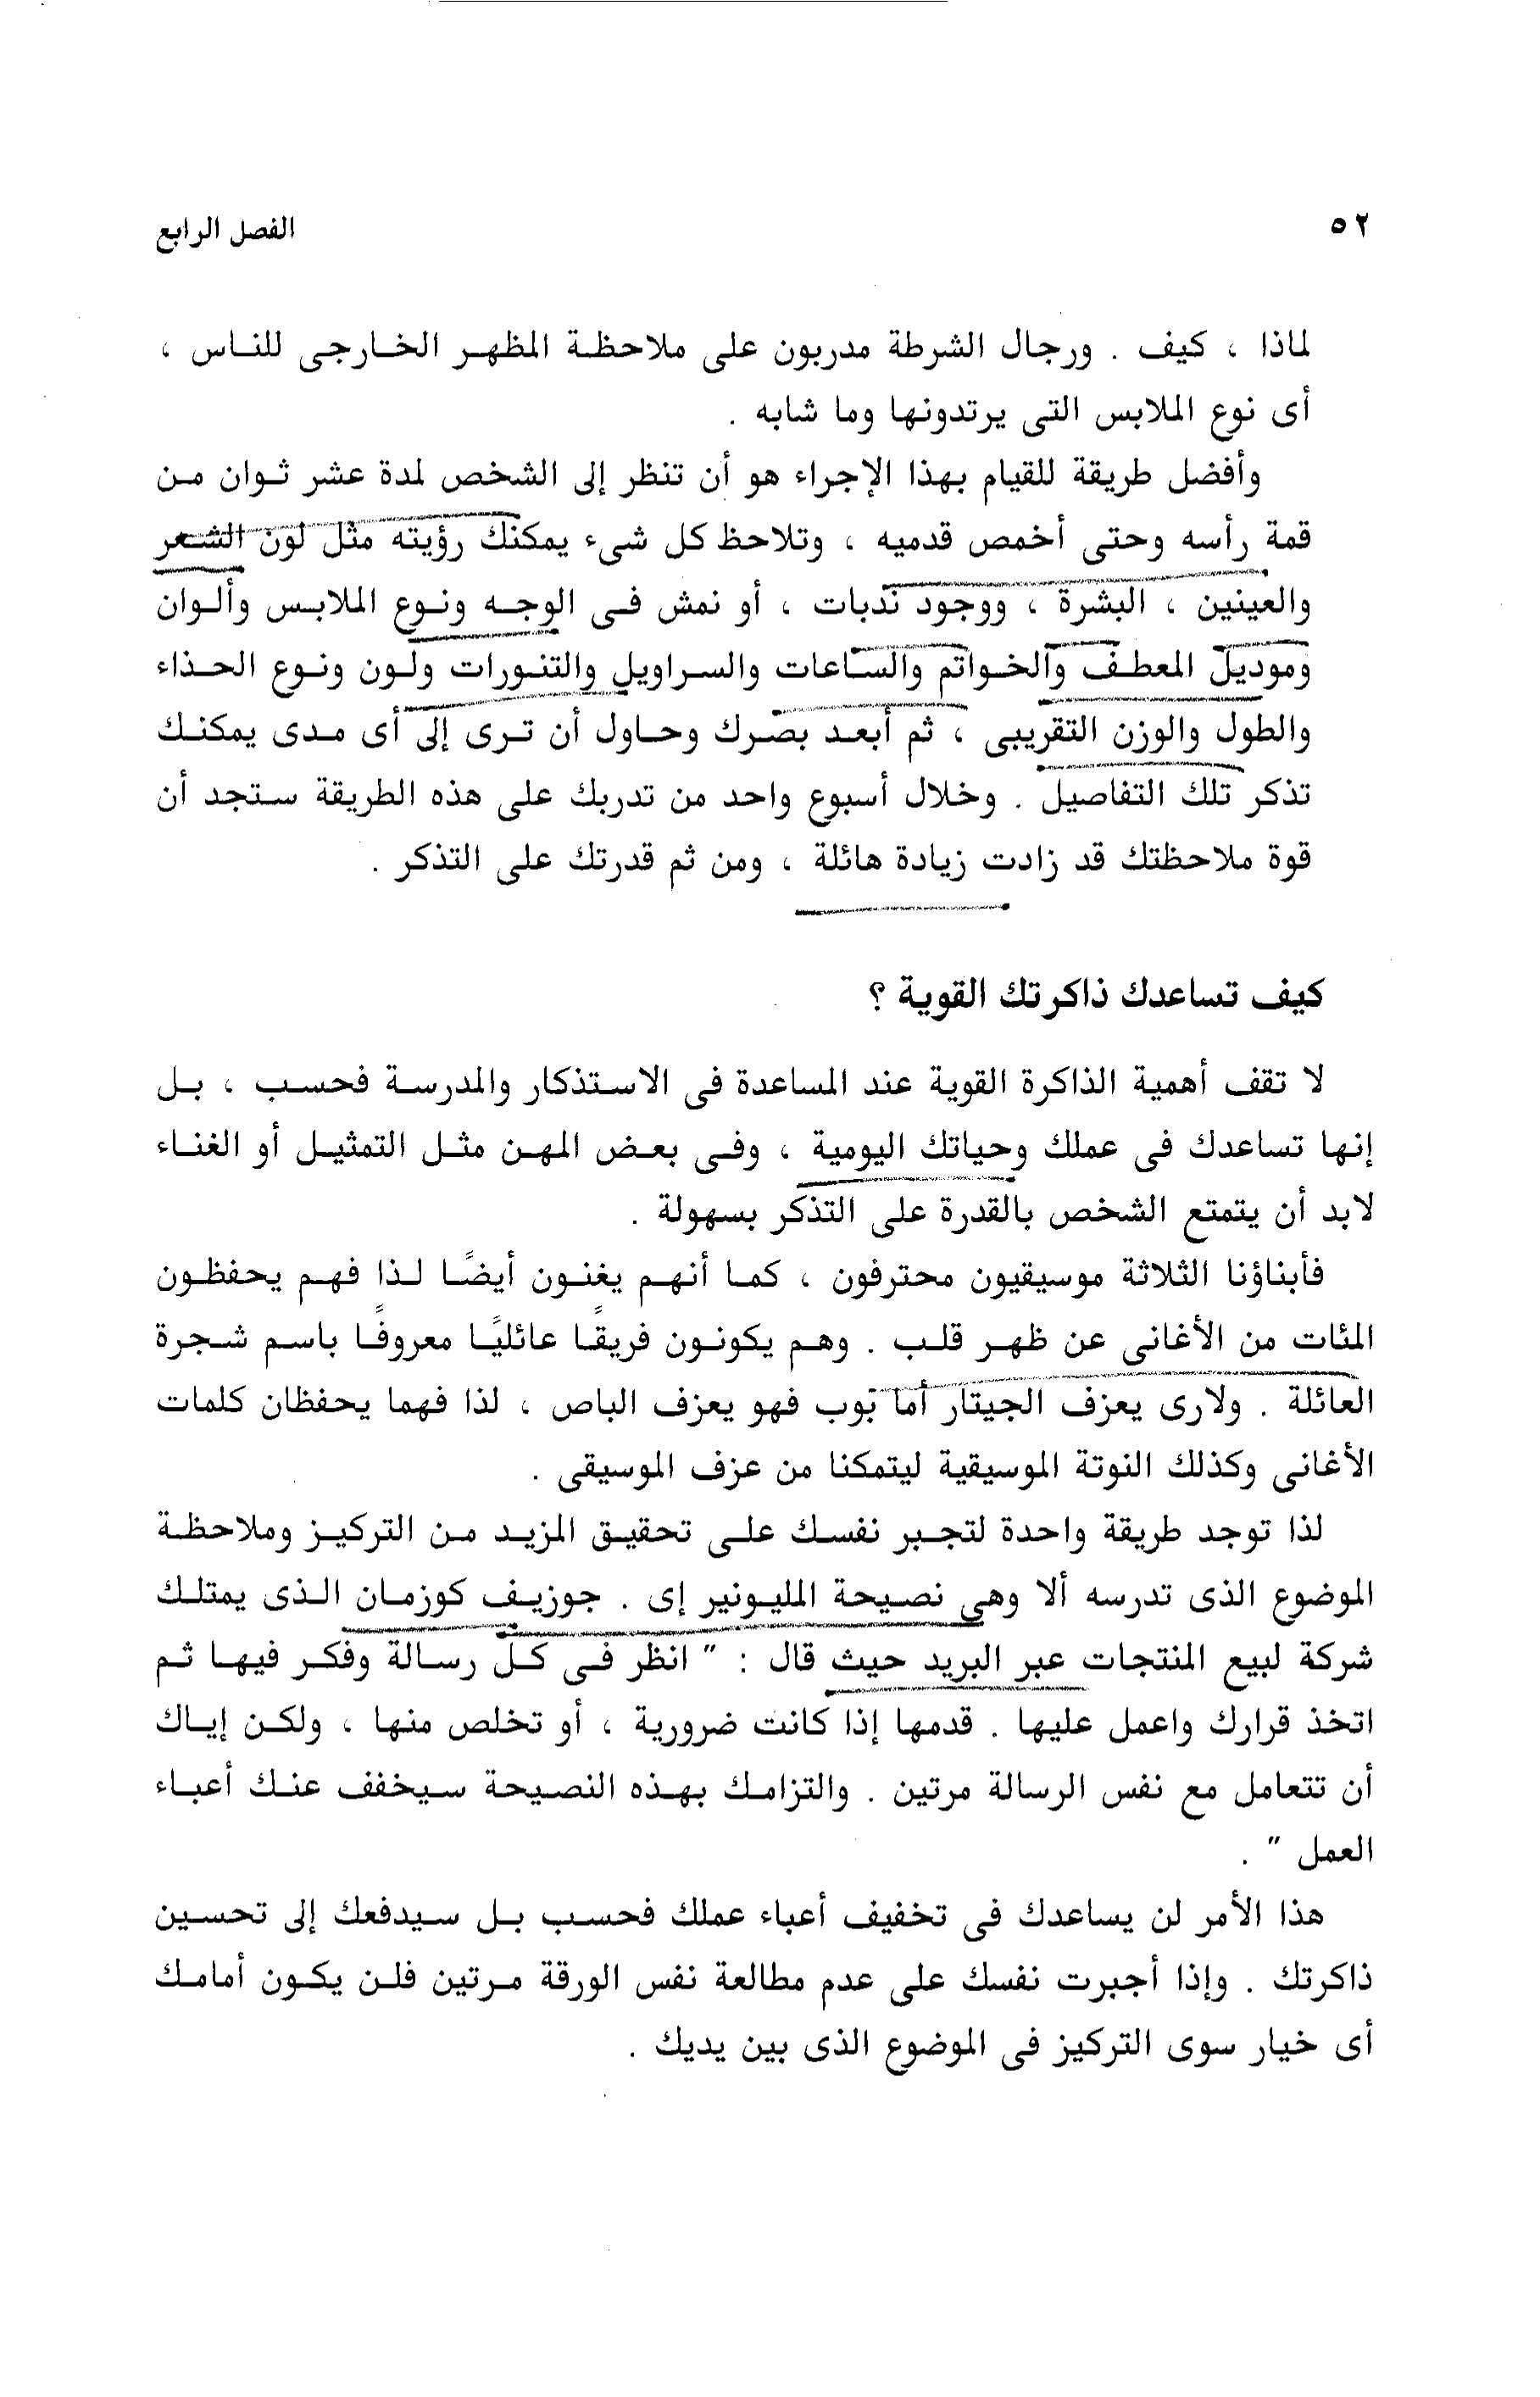 ٥٢
الفصل الرابع
لماذا ، كيف . ورجال الشرطة مدربون على ملاحظة المظهر الخارجى للناس ،
أى نوع الملابس التى يرتدونها وما شابه .
وأفضل طريقة للقيام بهذا الإجراء هو أن تنظر إلى الشخص لمدة عشر ثوان من
قمة رأسه وحتى أخمص قدميه ، وتلاحظ كل شىء يمكنك رؤيته مثل لون الشعر
والعينين ، البشرة ، ووجود ندبات ، أو نمش فى الوجه ونوع الملابس وألوان
وموديل المعطف والخواتم والساعات والسراويل والتنورات ولون ونوع الحذاء
والطول والوزن التقريبى ، ثم أبعد بصرك وحاول أن ترى إلى أى مدى يمكنك
تذكر تلك التفاصيل . وخلال أسبوع واحد من تدربك على هذه الطريقة ستجد أن
قوة ملاحظتك قد زادت زيادة هائلة ، ومن ثم قدرتك على التذكر .
كيف تساعدك ذاكرتك القوية ؟
لا تقف أهمية الذاكرة القوية عند المساعدة فى الاستذكار والمدرسة فحسب ، بل
إنها تساعدك فى عملك وحياتك اليومية ، وفى بعض المهن مثل التمثيل أو الغناء
لابد أن يتمتع الشخص بالقدرة على التذكر بسهولة .
فأبناؤنا الثلاثة موسيقيون محترفون ، كما أنهم يغنون أيضًا لذا فهم يحفظون
المئات من الأغانى عن ظهر قلب . وهم يكونون فريقًا عائليًا معروفًا باسم شجرة
العائلة . ولارى يعزف الجيتار أما بوب فهو يعزف الباص ، لذا فهما يحفظان كلمات
الأغانى وكذلك النوتة الموسيقية ليتمكنا من عزف الموسيقى .
لذا توجد طريقة واحدة لتجبر نفسك على تحقيق المزيد من التركيز وملاحظة
الموضوع الذى تدرسه ألا وهى نصيحة المليونير إى . جوزيف كوزمان الذى يمتلك
شركة لبيع المنتجات عبر البريد حيث قال : " انظر فى كل رسالة وفكر فيها ثم
اتخذ قرارك واعمل عليها . قدمها إذا كانت ضرورية ، أو تخلص منها ، ولكن إياك
أن تتعامل مع نفس الرسالة مرتين . والتزامك بهذه النصيحة سيخفف عنك أعباء
العمل " .
هذا الأمر لن يساعدك فى تخفيف أعباء عملك فحسب بل سيدفعك إلى تحسين
ذاكرتك . وإذا أجبرت نفسك على عدم مطالعة نفس الورقة مرتين فلن يكون أمامك
أى خيار سوى التركيز فى الموضوع الذى بين يديك .